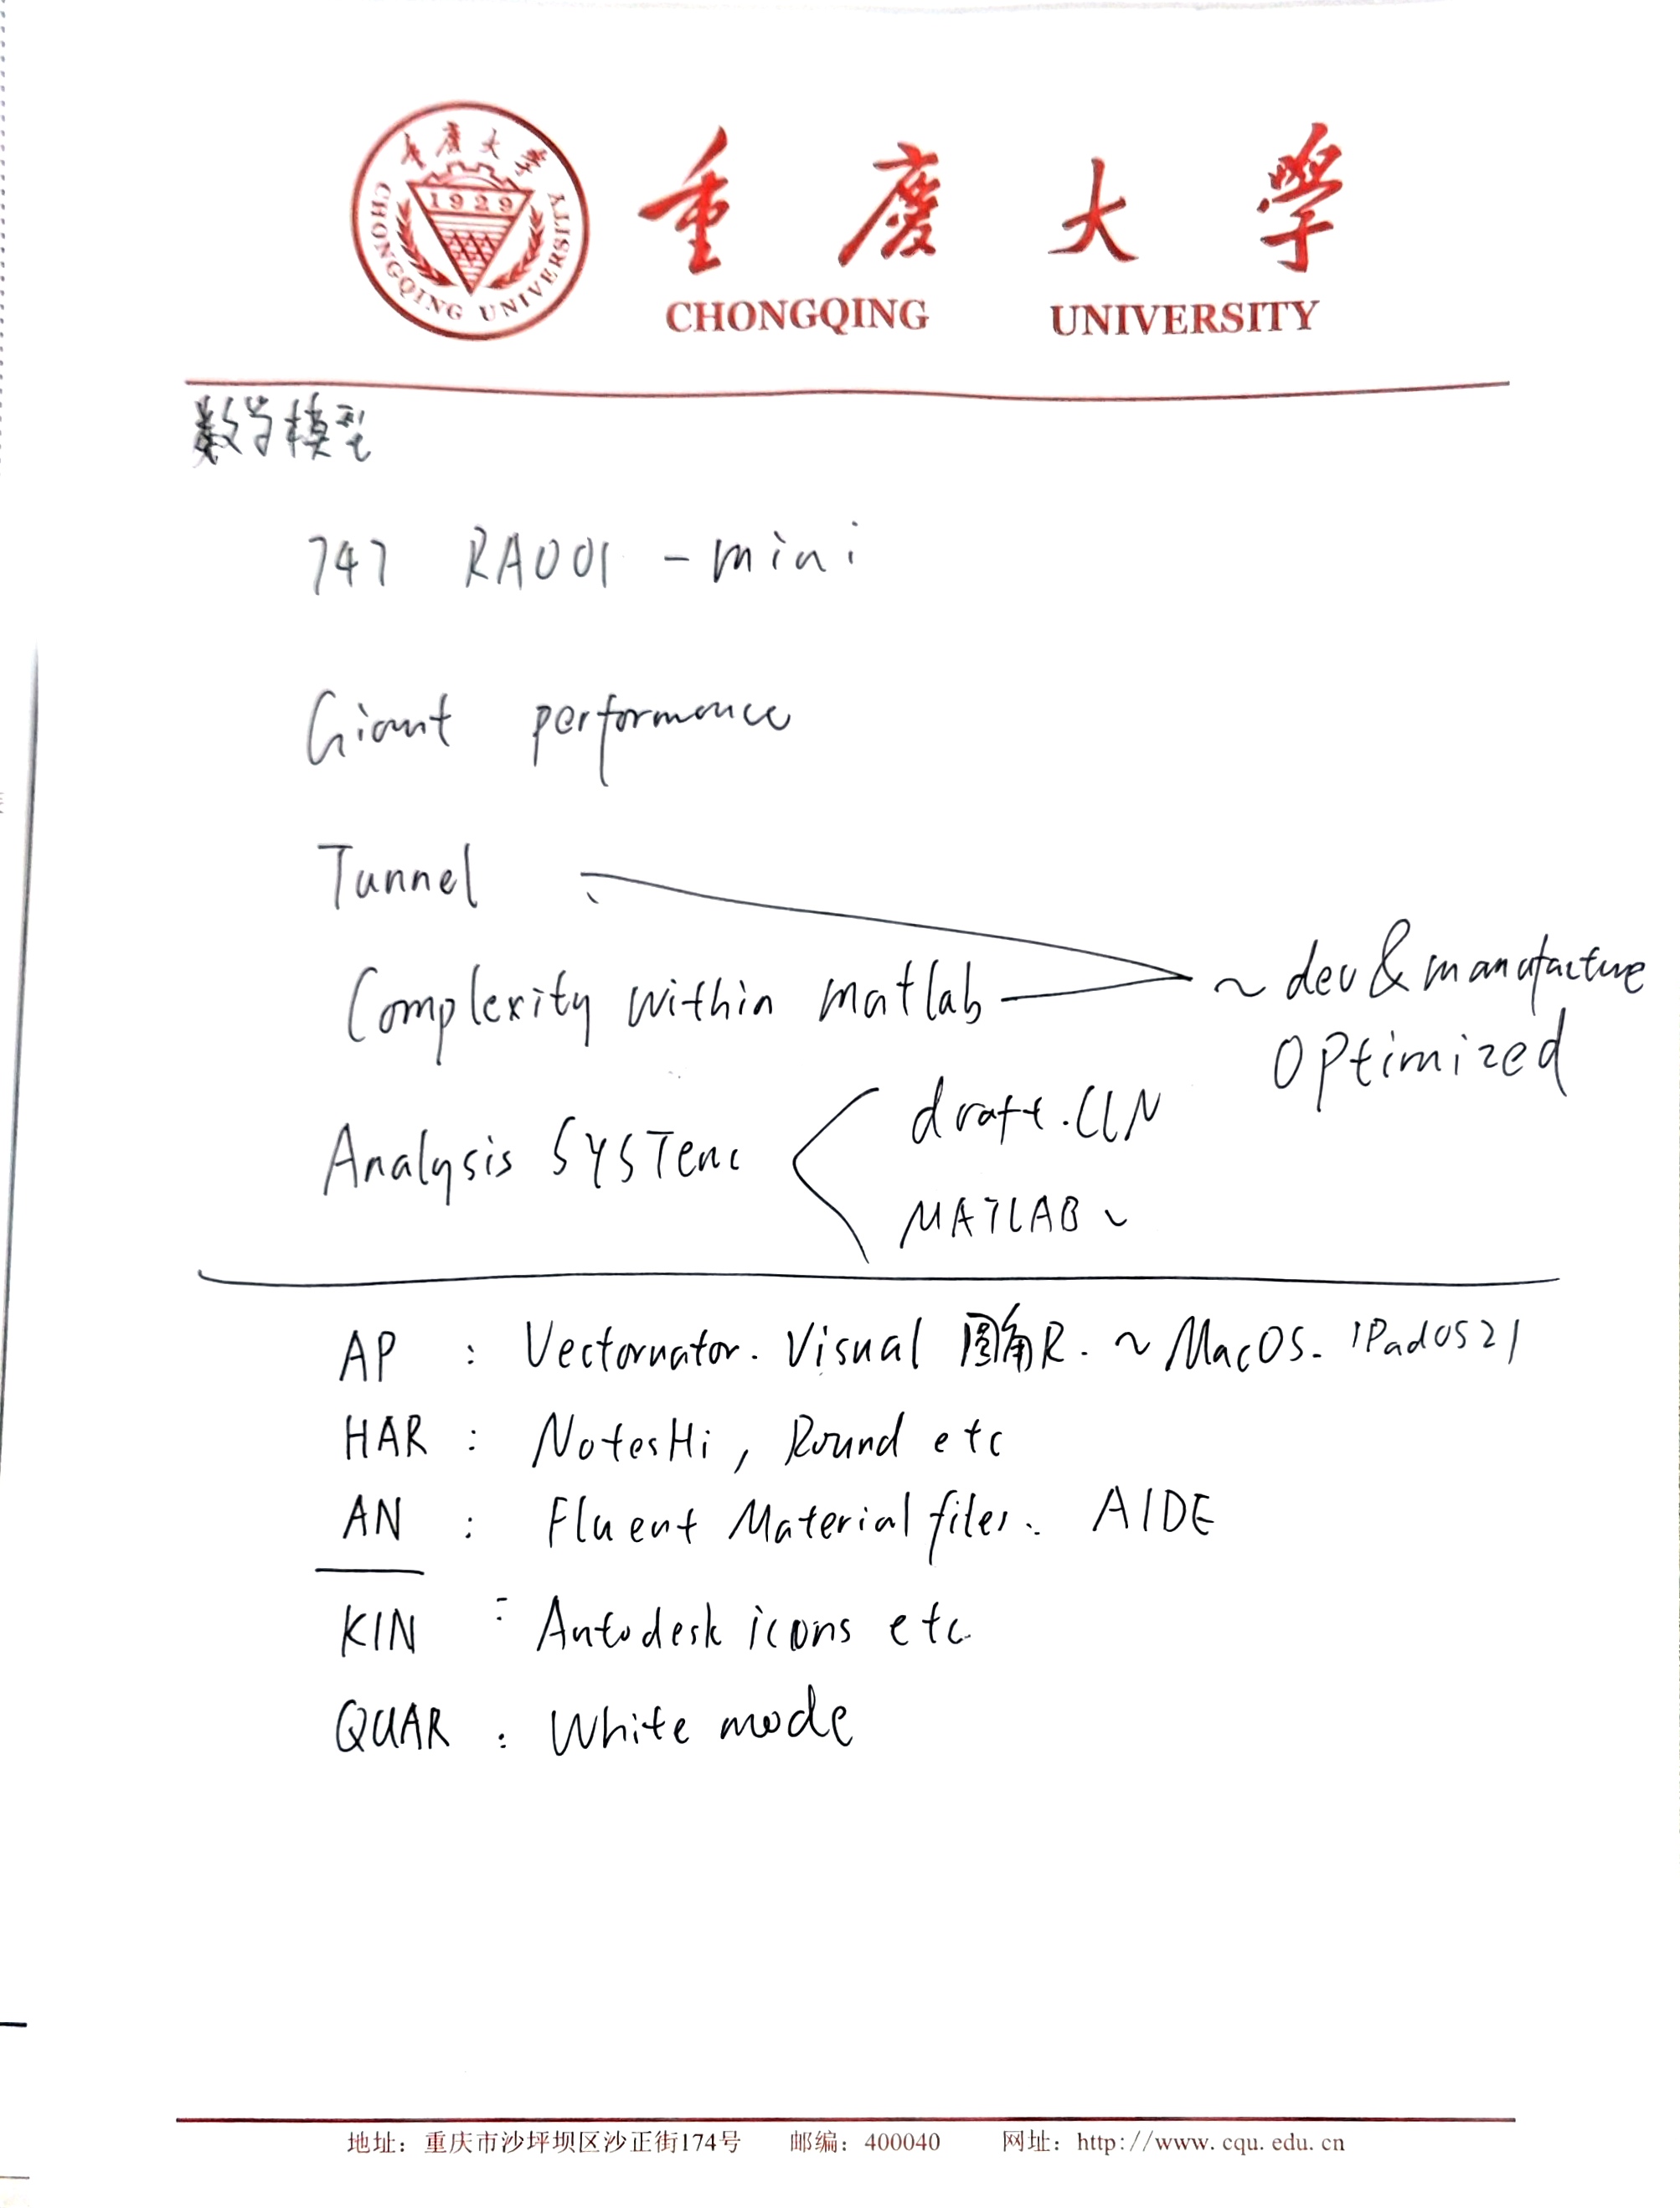 重慶大學
1929
CHONGQING UNIVERSITY
重慶大學
CHONGQING UNIVERSITY
数学模型
747 RA001 - mini
Giant performance
Tunnel
Complexity within matlab ~ dev & manufacture
Optimized
Analysis SYSTem
draft.CLN
MATLAB ~
AP : Vectornator. Visual 圆角R. ~ MacOS. iPadOS 21
HAR : NotesHi, Round etc
AN : Fluent Material files. AIDE
KIN : Autodesk icons etc.
QUAR : White mode
地址：重庆市沙坪坝区沙正街174号 邮编：400040 网址：http://www.cqu.edu.cn